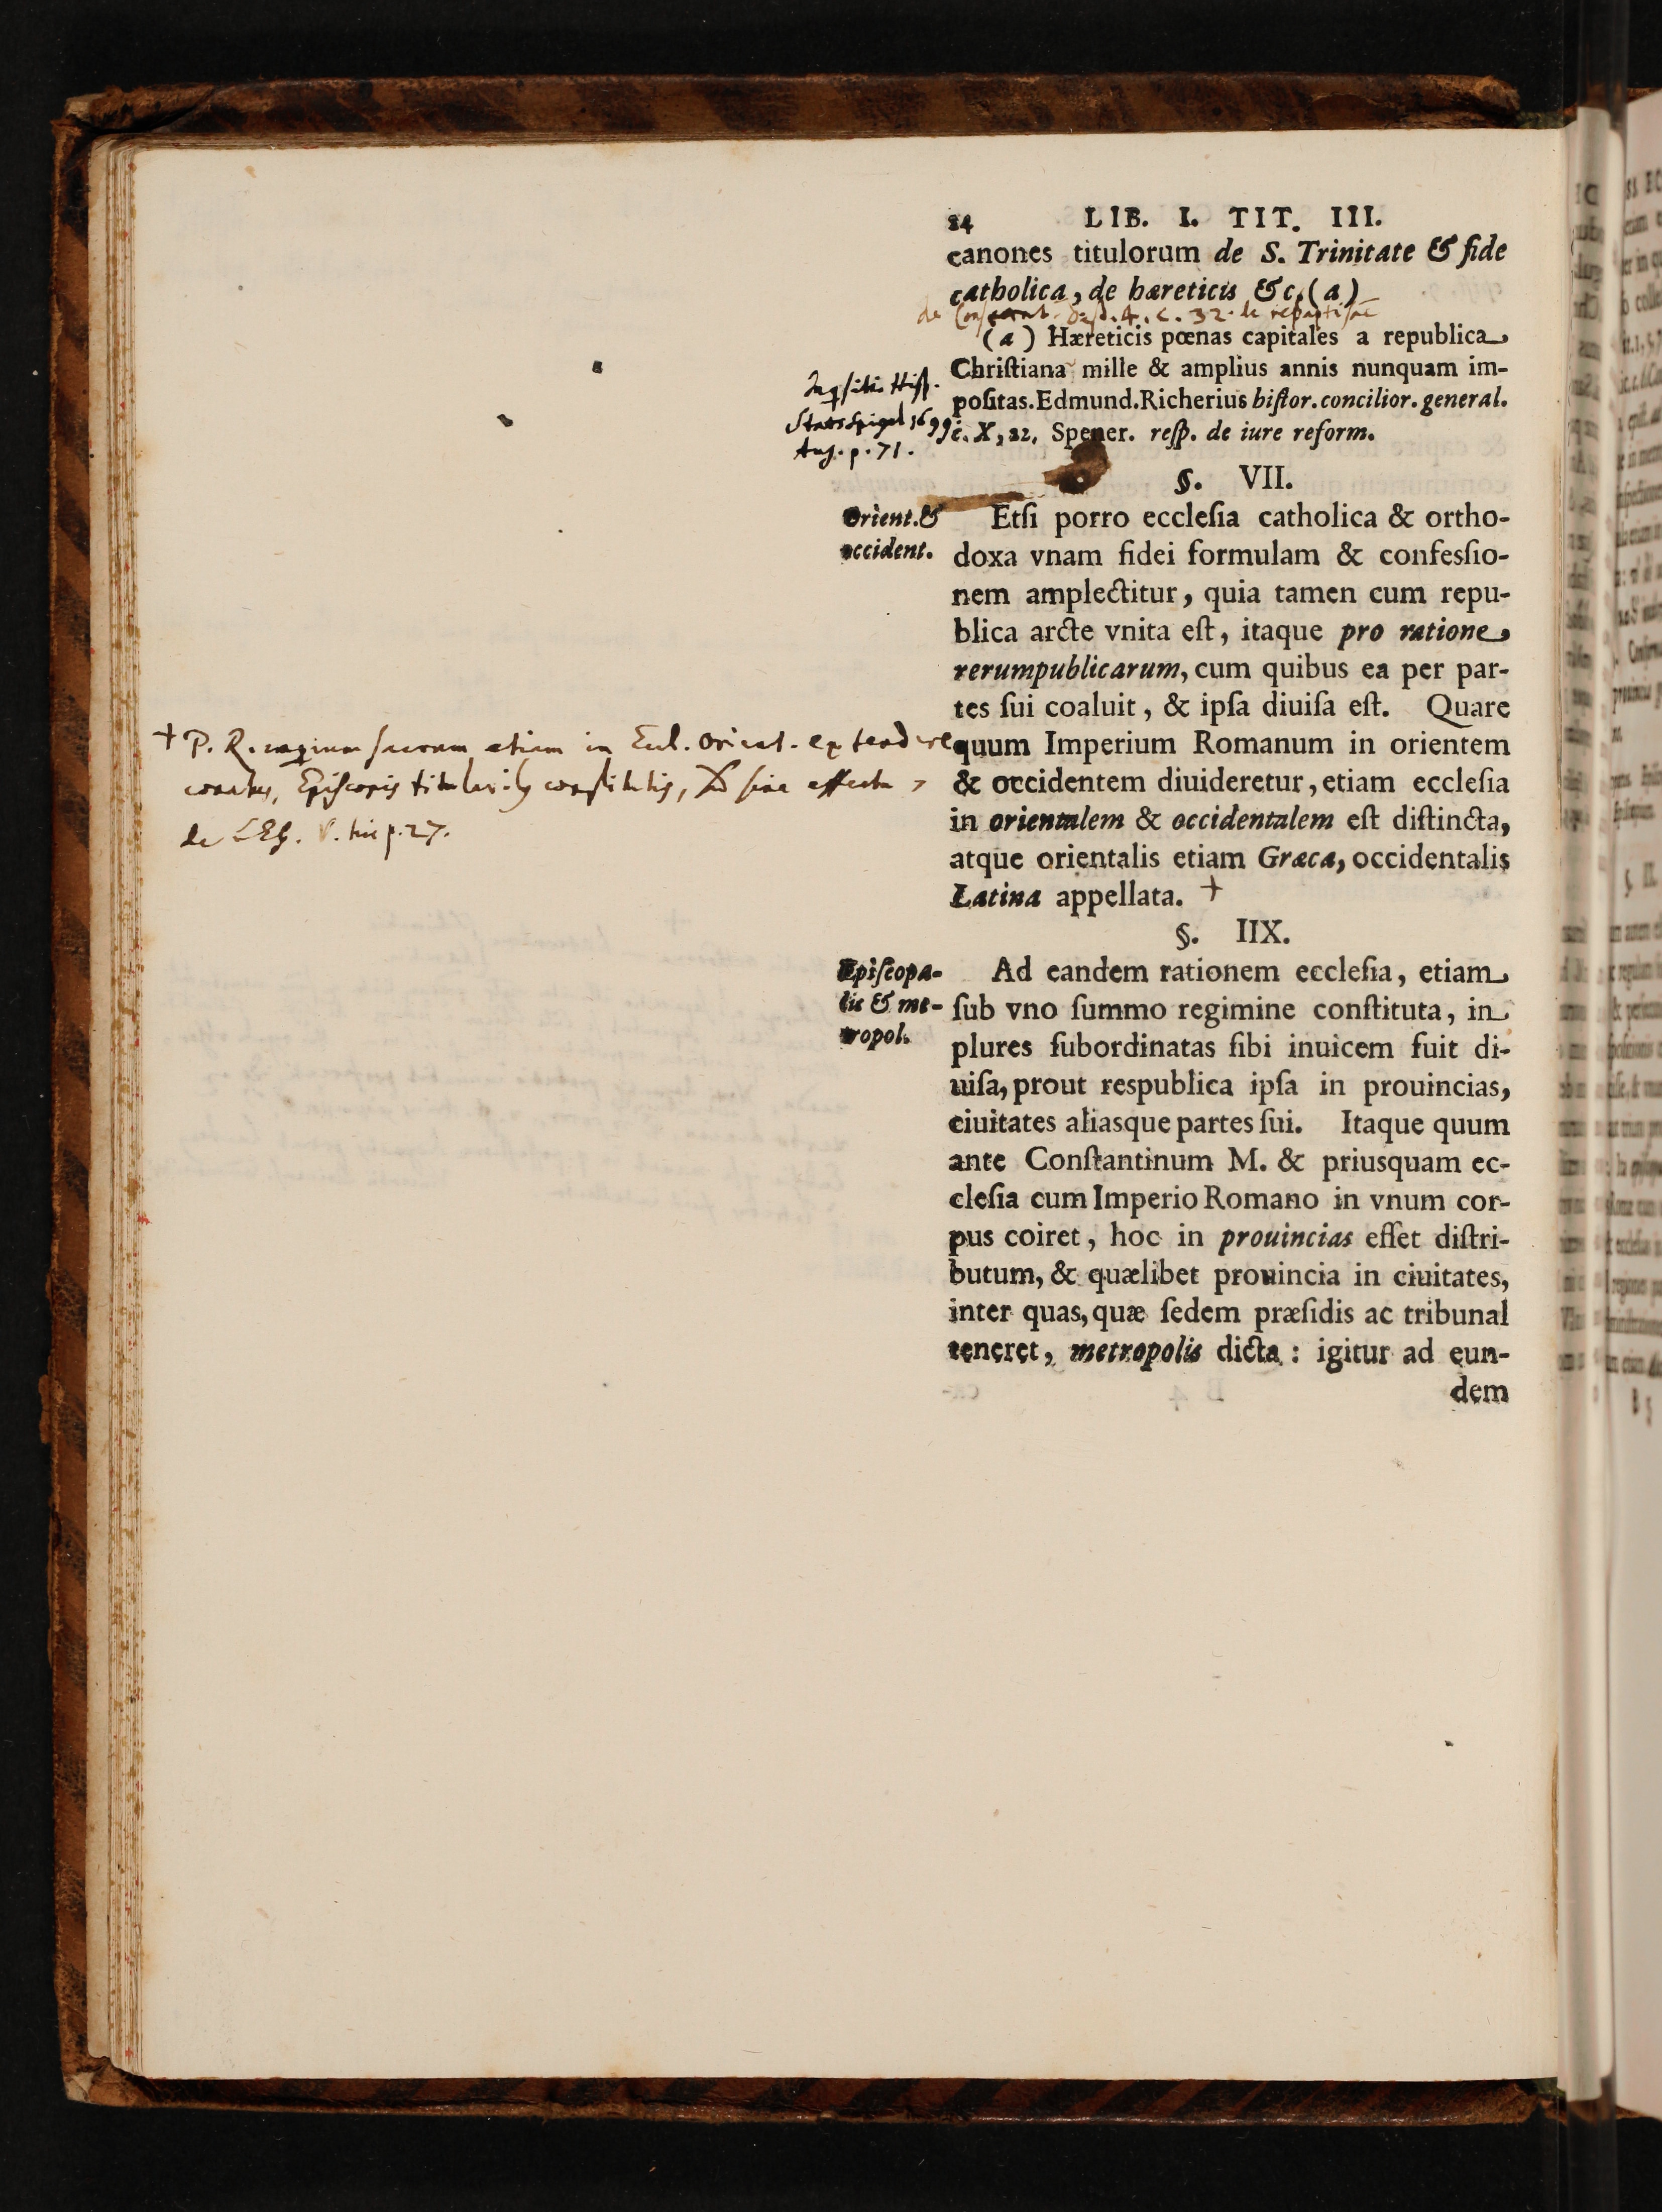 24 LIB. I. TIT. III.
canones titulorum de S. Trinitate & fide
catholica, de hæreticis &c. (a)
de Consecrat. Dist. 4. c. 32. de rebaptisat
(a) Hæreticis pœnas capitales a republica
Chriſtiana mille & amplius annis nunquam im-
poſitas. Edmund. Richerius hiſtor. concilior. general.
c. X, 22. Spener. reſp. de iure reform.
Inqſitio Hiſp.
Staats Spigel 1699
Aug. p. 71.
§. VII.
Orient. &
occident.
Etſi porro eccleſia catholica & ortho-
doxa vnam fidei formulam & confeſſio-
nem amplectitur, quia tamen cum repu-
blica arcte vnita eſt, itaque pro ratione
rerumpublicarum, cum quibus ea per par-
tes ſui coaluit, & ipſa diuiſa eſt. Quare
quum Imperium Romanum in orientem
& occidentem diuideretur, etiam eccleſia
in orientalem & occidentalem eſt diſtincta,
atque orientalis etiam Græca, occidentalis
Latina appellata. +
+ P. R. ſuum etiam in Eccl. Orient. extendere
conatus, Epiſcopis titularib9 conſtitutis, ſed ſine effectu
de p. 27.
§. IIX.
Epiſcopa-
lis & me-
tropol.
Ad eandem rationem eccleſia, etiam
ſub vno ſummo regimine conſtituta, in
plures ſubordinatas ſibi inuicem fuit di-
uiſa, prout respublica ipſa in prouincias,
ciuitates aliasque partes ſui. Itaque quum
ante Conſtantinum M. & priusquam ec-
cleſia cum Imperio Romano in vnum cor-
pus coiret, hoc in prouincias eſſet diſtri-
butum, & quælibet prouincia in ciuitates,
inter quas, quæ ſedem præſidis ac tribunal
teneret, metropolis dicta : igitur ad eun-
dem